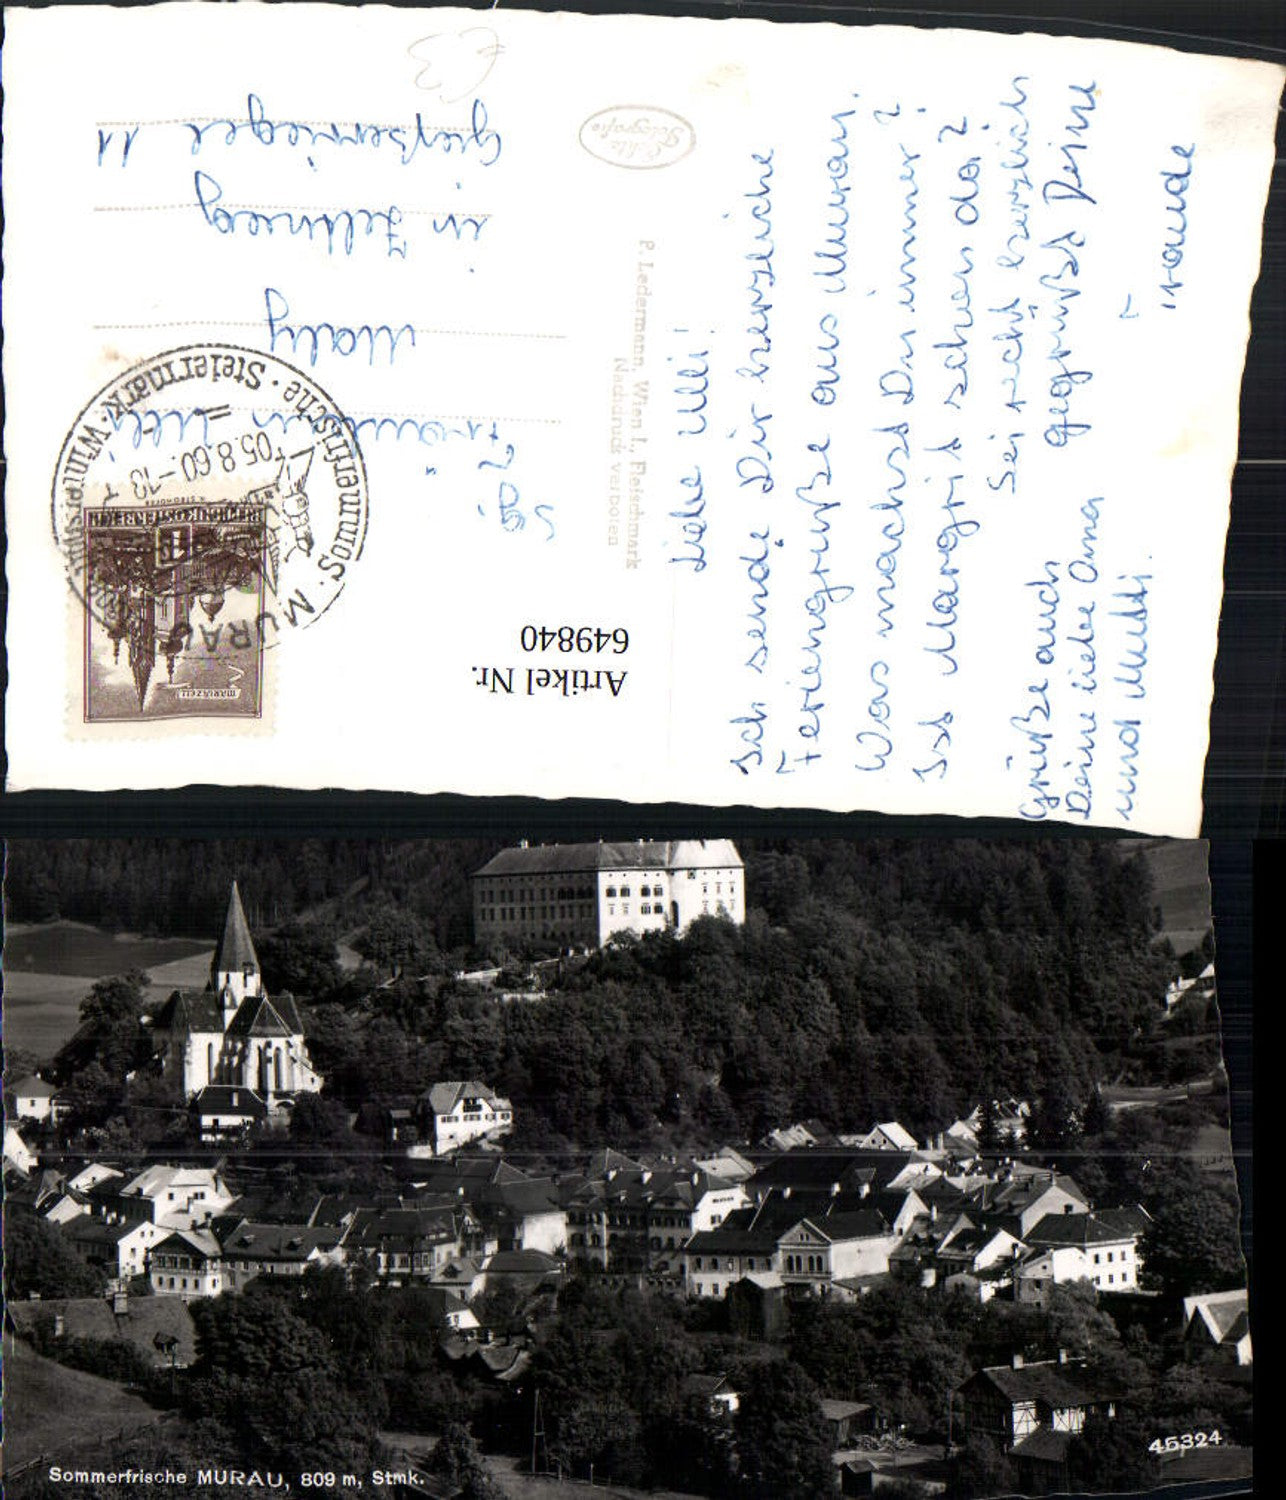 Liebe Ulli!
Ich sende Dir herzliche
Feriengrüße aus Murau.
Was machst Du immer?
Ist Margrit schon da?
Sei recht herzlich
gegrüßt Deine
Traude
Grüße auch
Deine liebe Oma
und Mutti.
Fräulein Ulli
Mally
in Zeltweg
11
Echte
Fotografie
P. Ledermann, Wien I., Fleischmarkt
Nachdruck verboten
Artikel Nr.
649840
MURAU · Sommerfrische · Steiermark · Wintersport
05.8.60.-18
MARIAZELL
REPUBLIK ÖSTERREICH
€3
Sommerfrische MURAU, 809 m, Stmk.
45324